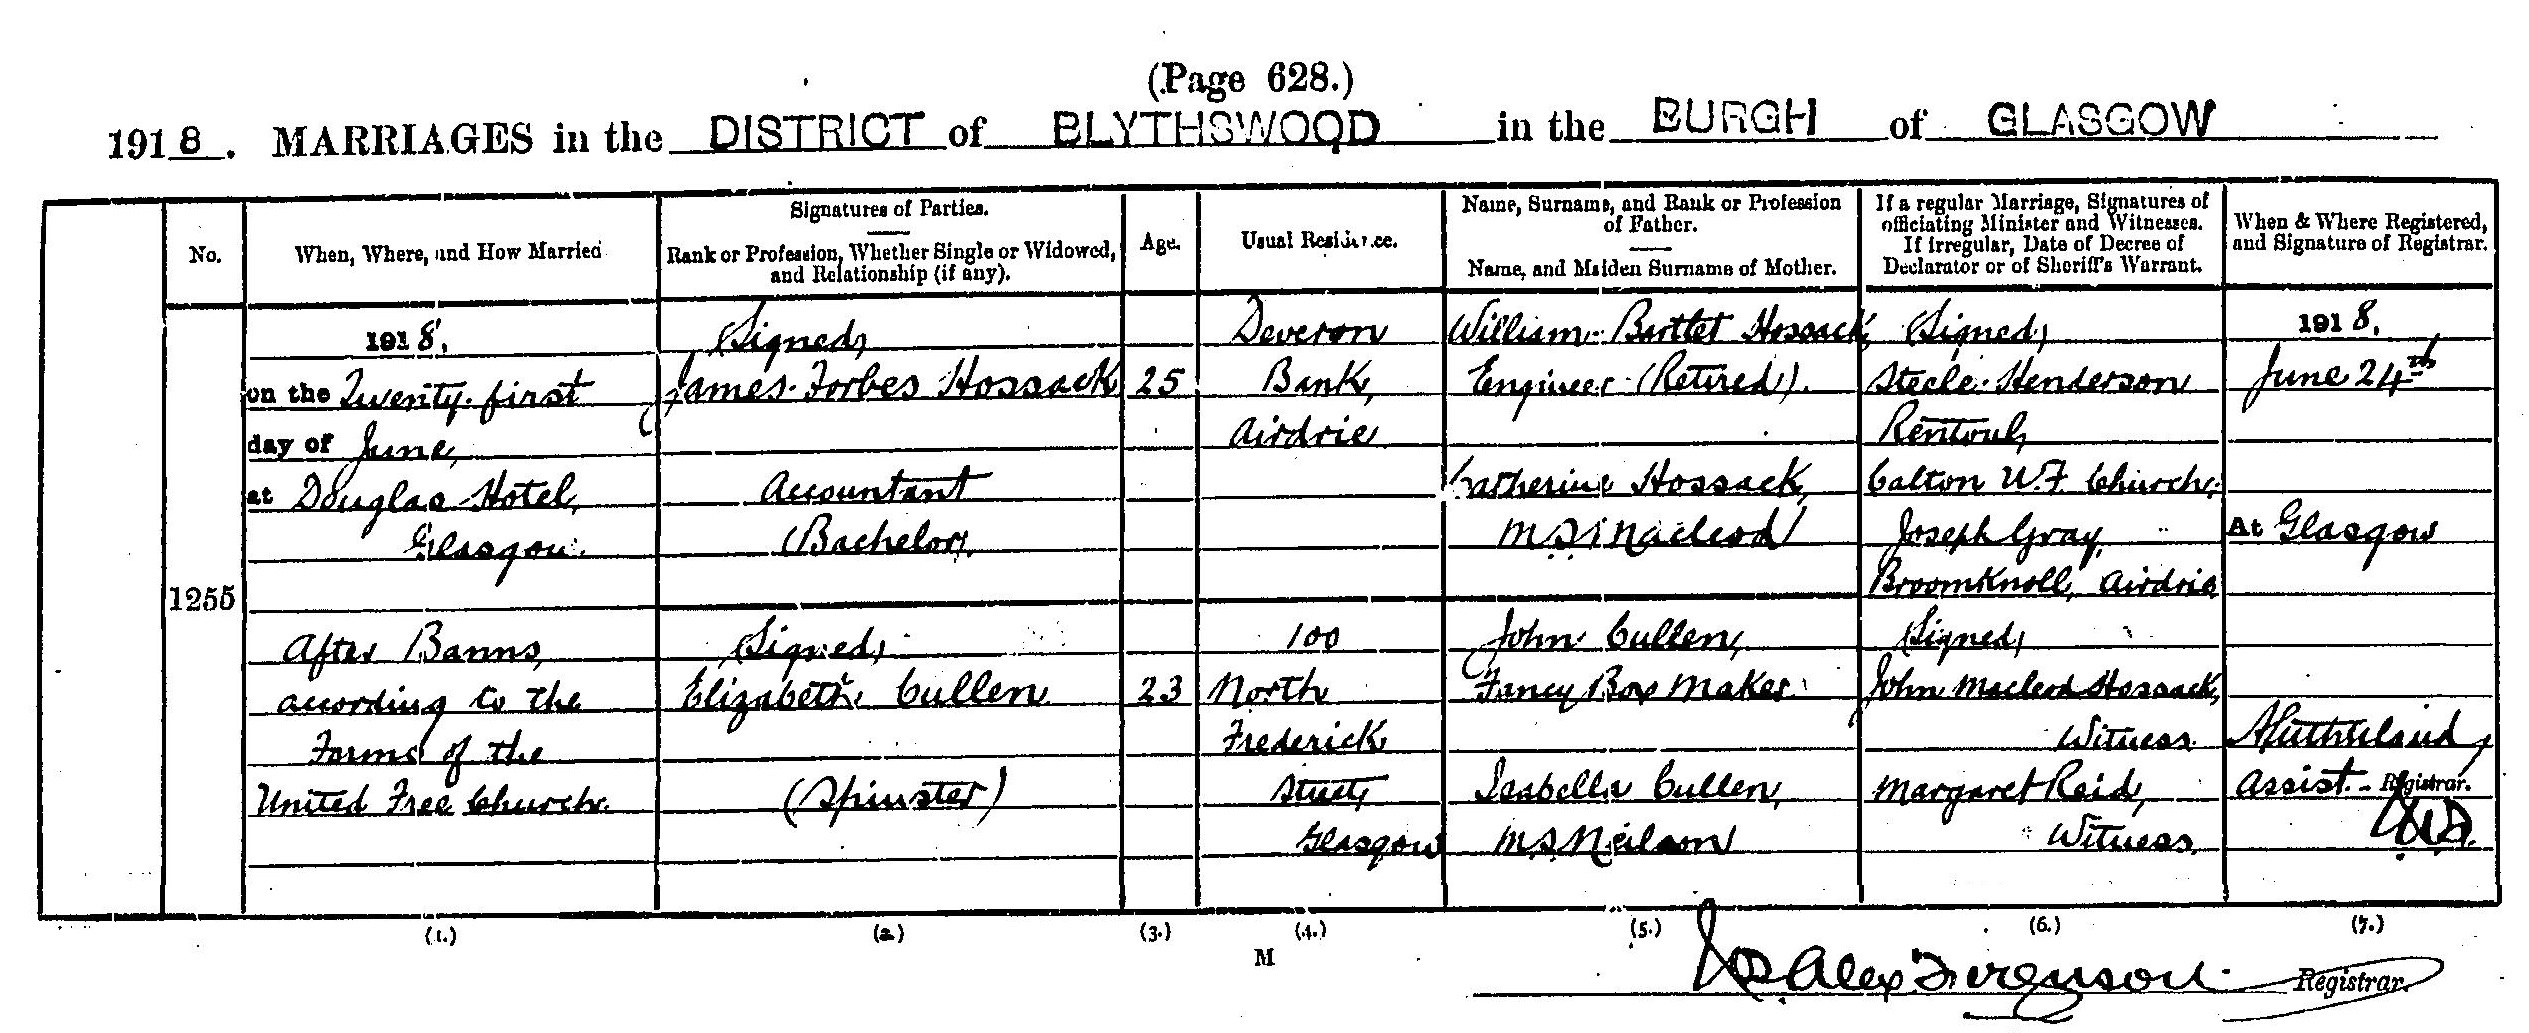 (Page 628.)
1918. MARRIAGES in the DISTRICT of BLYTHSWOOD in the BURGH of GLASGOW
No.
When, Where, and How Married
Signatures of Parties.
Rank or Profession, Whether Single or Widowed,
and Relationship (if any).
Age.
Usual Residence.
Name, Surname, and Rank or Profession
of Father.
Name, and Maiden Surname of Mother.
If a regular Marriage, Signatures of
officiating Minister and Witnesses.
If irregular, Date of Decree of
Declarator or of Sheriff's Warrant.
When & Where Registered,
and Signature of Registrar.
1255
1918,
on the Twenty-first
day of June,
at Douglas Hotel,
Glasgow.
After Banns,
according to the
Forms of the
United Free Church.
(Signed)
James Forbes Hossack
Accountant
(Bachelor).
(Signed)
Elizabeth Cullen
(Spinster)
25
23
Deveron
Bank,
Airdrie
100
North
Frederick
Street,
Glasgow
William Bartlet Hossack,
Engineer (Retired).
Catherine Hossack,
M.S. Macleod
John Cullen,
Fancy Box Maker
Isabella Cullen,
M.S. Neilson
(Signed)
Steele Henderson
Rentoul,
Calton U.F. Church;
Joseph Gray,
Broomknoll, Airdrie
(Signed)
John Macleod Hossack,
Witness.
Margaret Reid,
Witness.
1918,
June 24th
At Glasgow
Assist. Registrar.
(1.) (2.) (3.) (4.) (5.) (6.) (7.)
M
Alex Ferguson Registrar.